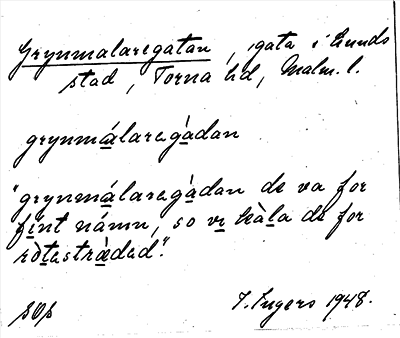 Grynmalaregatan, gata i Lunds
stad, Torna hd, Malm. l.
grynmálaregàdan
"grynmálaregàdan de va for
fint námn, so vi kàla de for
ròtestràded".
I. Ingers 1948.